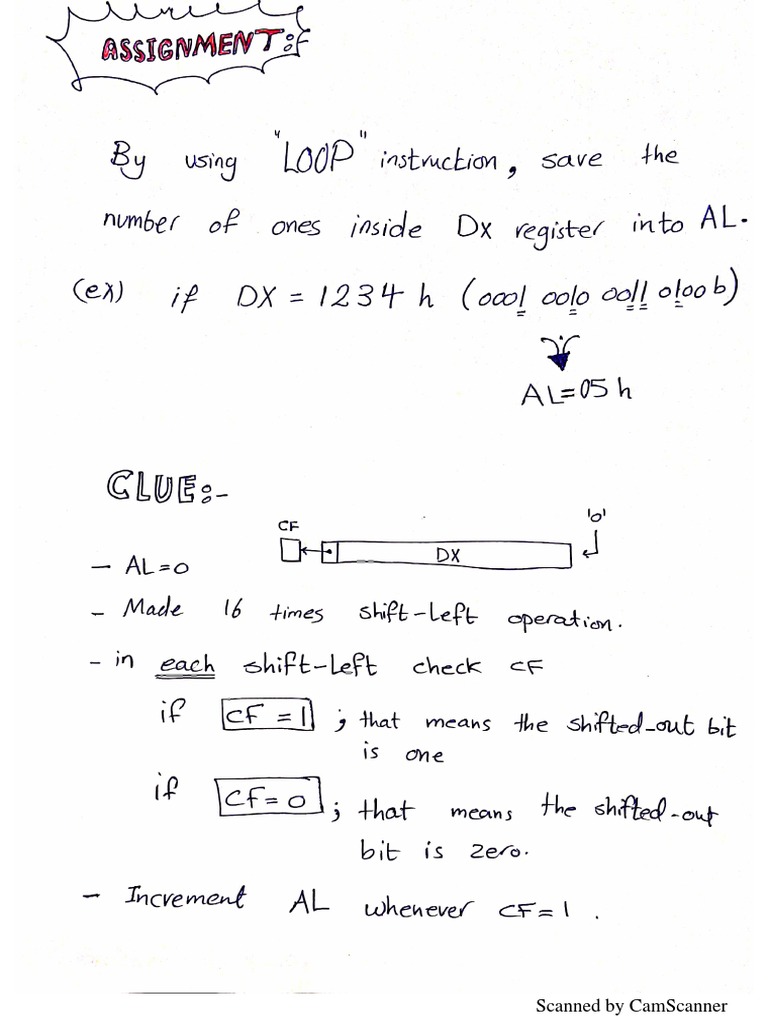 ASSIGNMENT:-
By using "LOOP" instruction, save the
number of ones inside Dx register into AL.
(ex) if DX = 1234 h (0001 0010 0011 0100 b)
AL=05 h
CLUE:-
CF '0'
DX
- AL=0
- Made 16 times shift-left operation.
- in each shift-left check CF
if CF = 1 ; that means the shifted-out bit
is one
if CF = 0 ; that means the shifted-out
bit is zero.
- Increment AL whenever CF=1.
Scanned by CamScanner